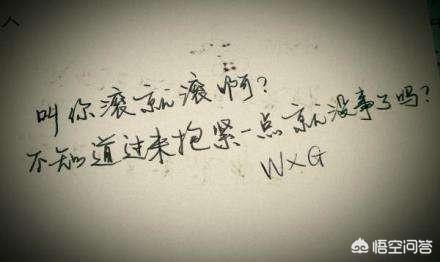 人
叫你滚就滚啊?
不知道过来抱紧一点就没事了吗?
WXG
悟空问答